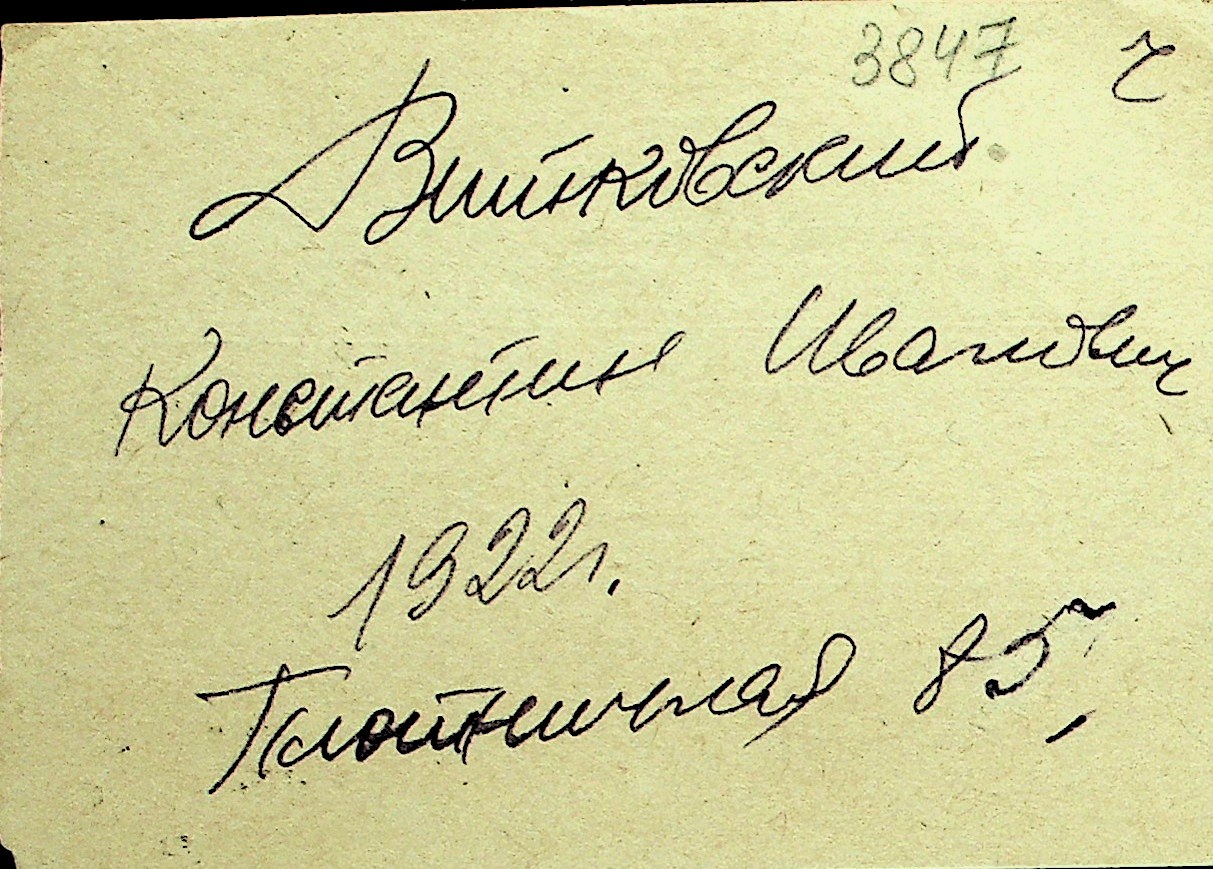 3847 ч
Витковский
Константин Иванович
1922г.
Плотничная 85,